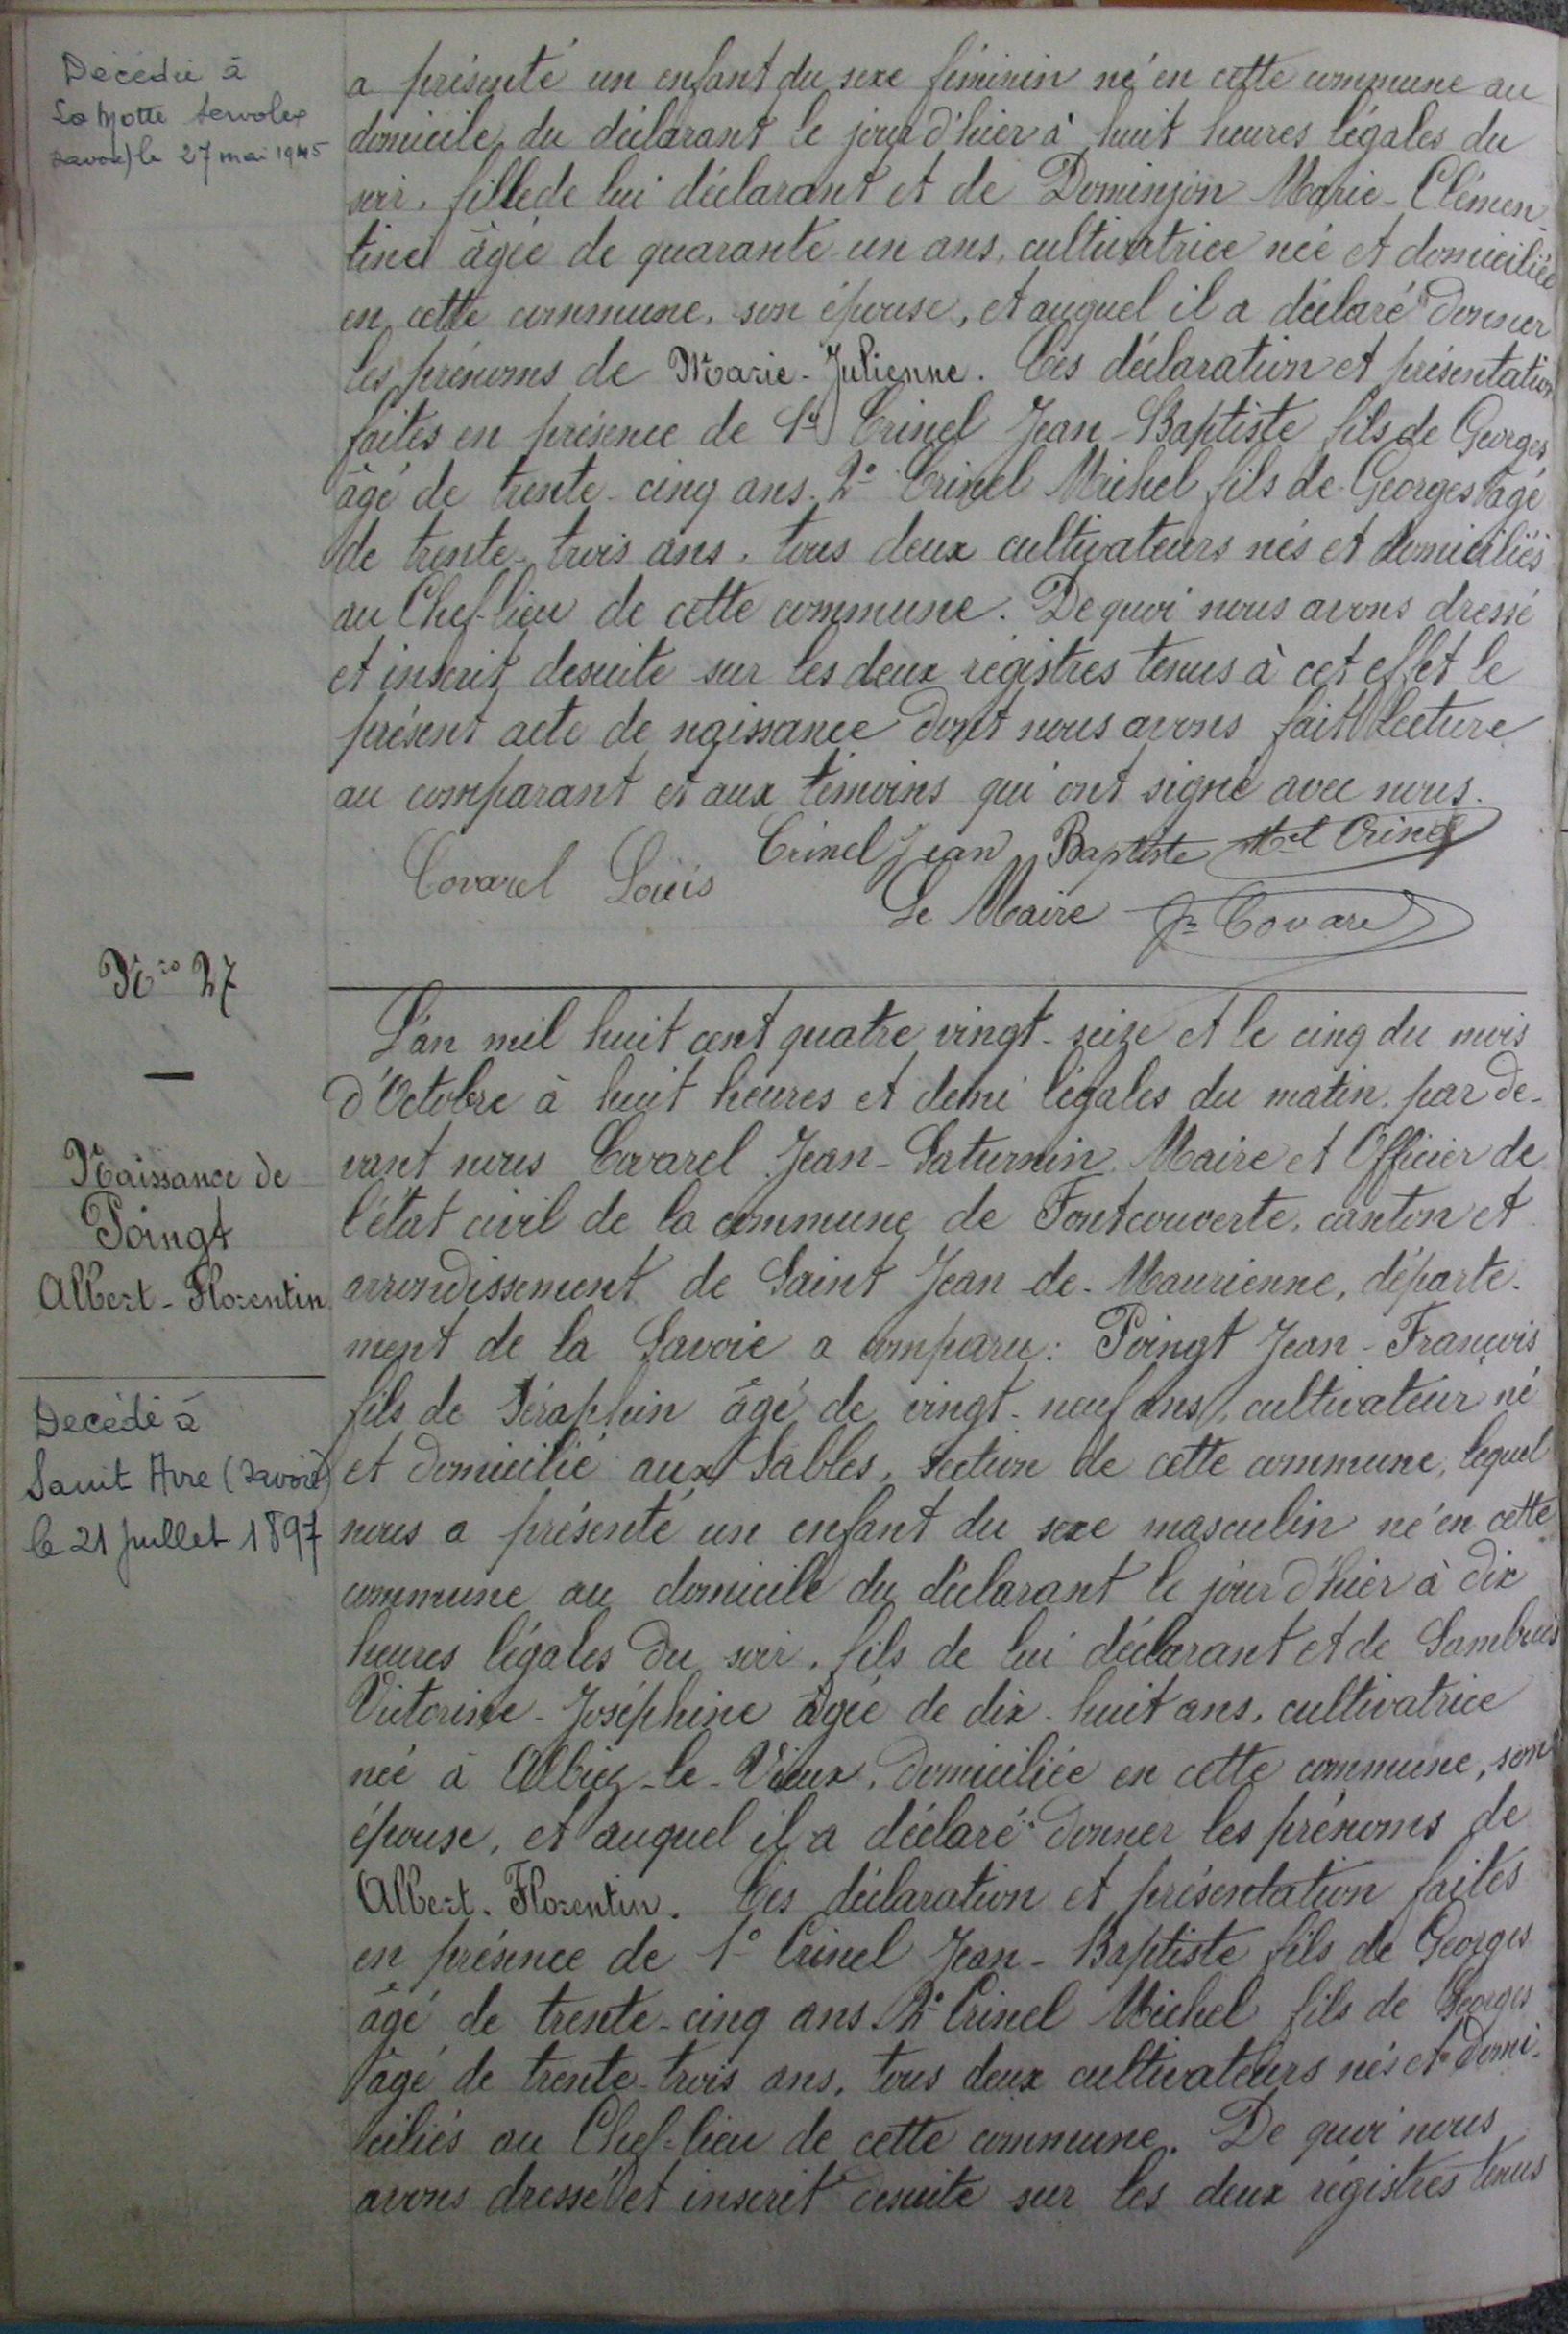 Décédée à
La Motte Servolex
savoie) le 27 mai 1945
a présenté un enfant du sexe féminin né en cette commune au
domicile du déclarant le jour d'hier à huit heures légales du
soir, fille de lui déclarant et de Dominjon Marie-Clémen-
tine âgée de quarante-un ans, cultivatrice née et domiciliée
en cette commune, son épouse, et auquel il a déclaré donner
les prénoms de Marie-Julienne. Ces déclaration et présentation
faites en présence de 1° Crinel Jean-Baptiste fils de Georges
âgé de trente-cinq ans. 2° Crinel Michel fils de Georges âgé
de trente-trois ans, tous deux cultivateurs nés et domiciliés
au Chef-lieu de cette commune. De quoi nous avons dressé
et inscrit desuite sur les deux régistres tenus à cet effet le
présent acte de naissance dont nous avons fait lecture
au comparant et aux témoins qui ont signé avec nous.
Covarel Louis Crinel Jean Baptiste Mel Crinel
Le Maire Jn Covarel
Nro 27
Naissance de
Poingt
Albert-Florentin
Decédé à
Saint Avre (Savoie)
le 21 juillet 1897
L'an mil huit cent quatre vingt-seize et le cinq du mois
d'Octobre à huit heures et demi légales du matin, par de-
vant nous Covarel Jean-Saturnin Maire et Officier de
l'état civil de la commune de Fontcouverte, canton et
arrondissement de Saint Jean-de-Maurienne, départe-
ment de la Savoie a comparu: Poingt Jean-François
fils de Séraphin âgé de vingt-neuf ans, cultivateur né
et domicilié aux Sables, section de cette commune, lequel
nous a présenté un enfant du sexe masculin né en cette
commune au domicile du déclarant le jour d'hier à dix
heures légales du soir, fils de lui déclarant et de Sambuis
Victorine-Joséphine âgée de dix-huit ans, cultivatrice
née à Albiez-le-Vieux, domiciliée en cette commune, son
épouse, et auquel il a déclaré donner les prénoms de
Albert-Florentin. Ces déclaration et présentation faites
en présence de 1° Crinel Jean-Baptiste fils de Georges
âgé de trente-cinq ans 2° Crinel Michel fils de Georges
âgé de trente-trois ans, tous deux cultivateurs nés et domi-
ciliés au Chef-lieu de cette commune. De quoi nous
avons dressé et inscrit desuite sur les deux régistres tenus